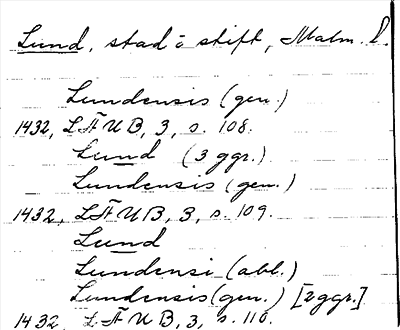 Lund, stad o stift, Malm. l.
Lundensis (gen.)
1432, LÄUB, 3, s. 108.
Lund (3 ggr.)
Lundensis (gen.)
1432, LÄUB, 3, s. 109.
Lund
Lundensi (abl.)
Lundensis (gen.) [2 ggr.]
1432, LÄUB, 3, s. 110.